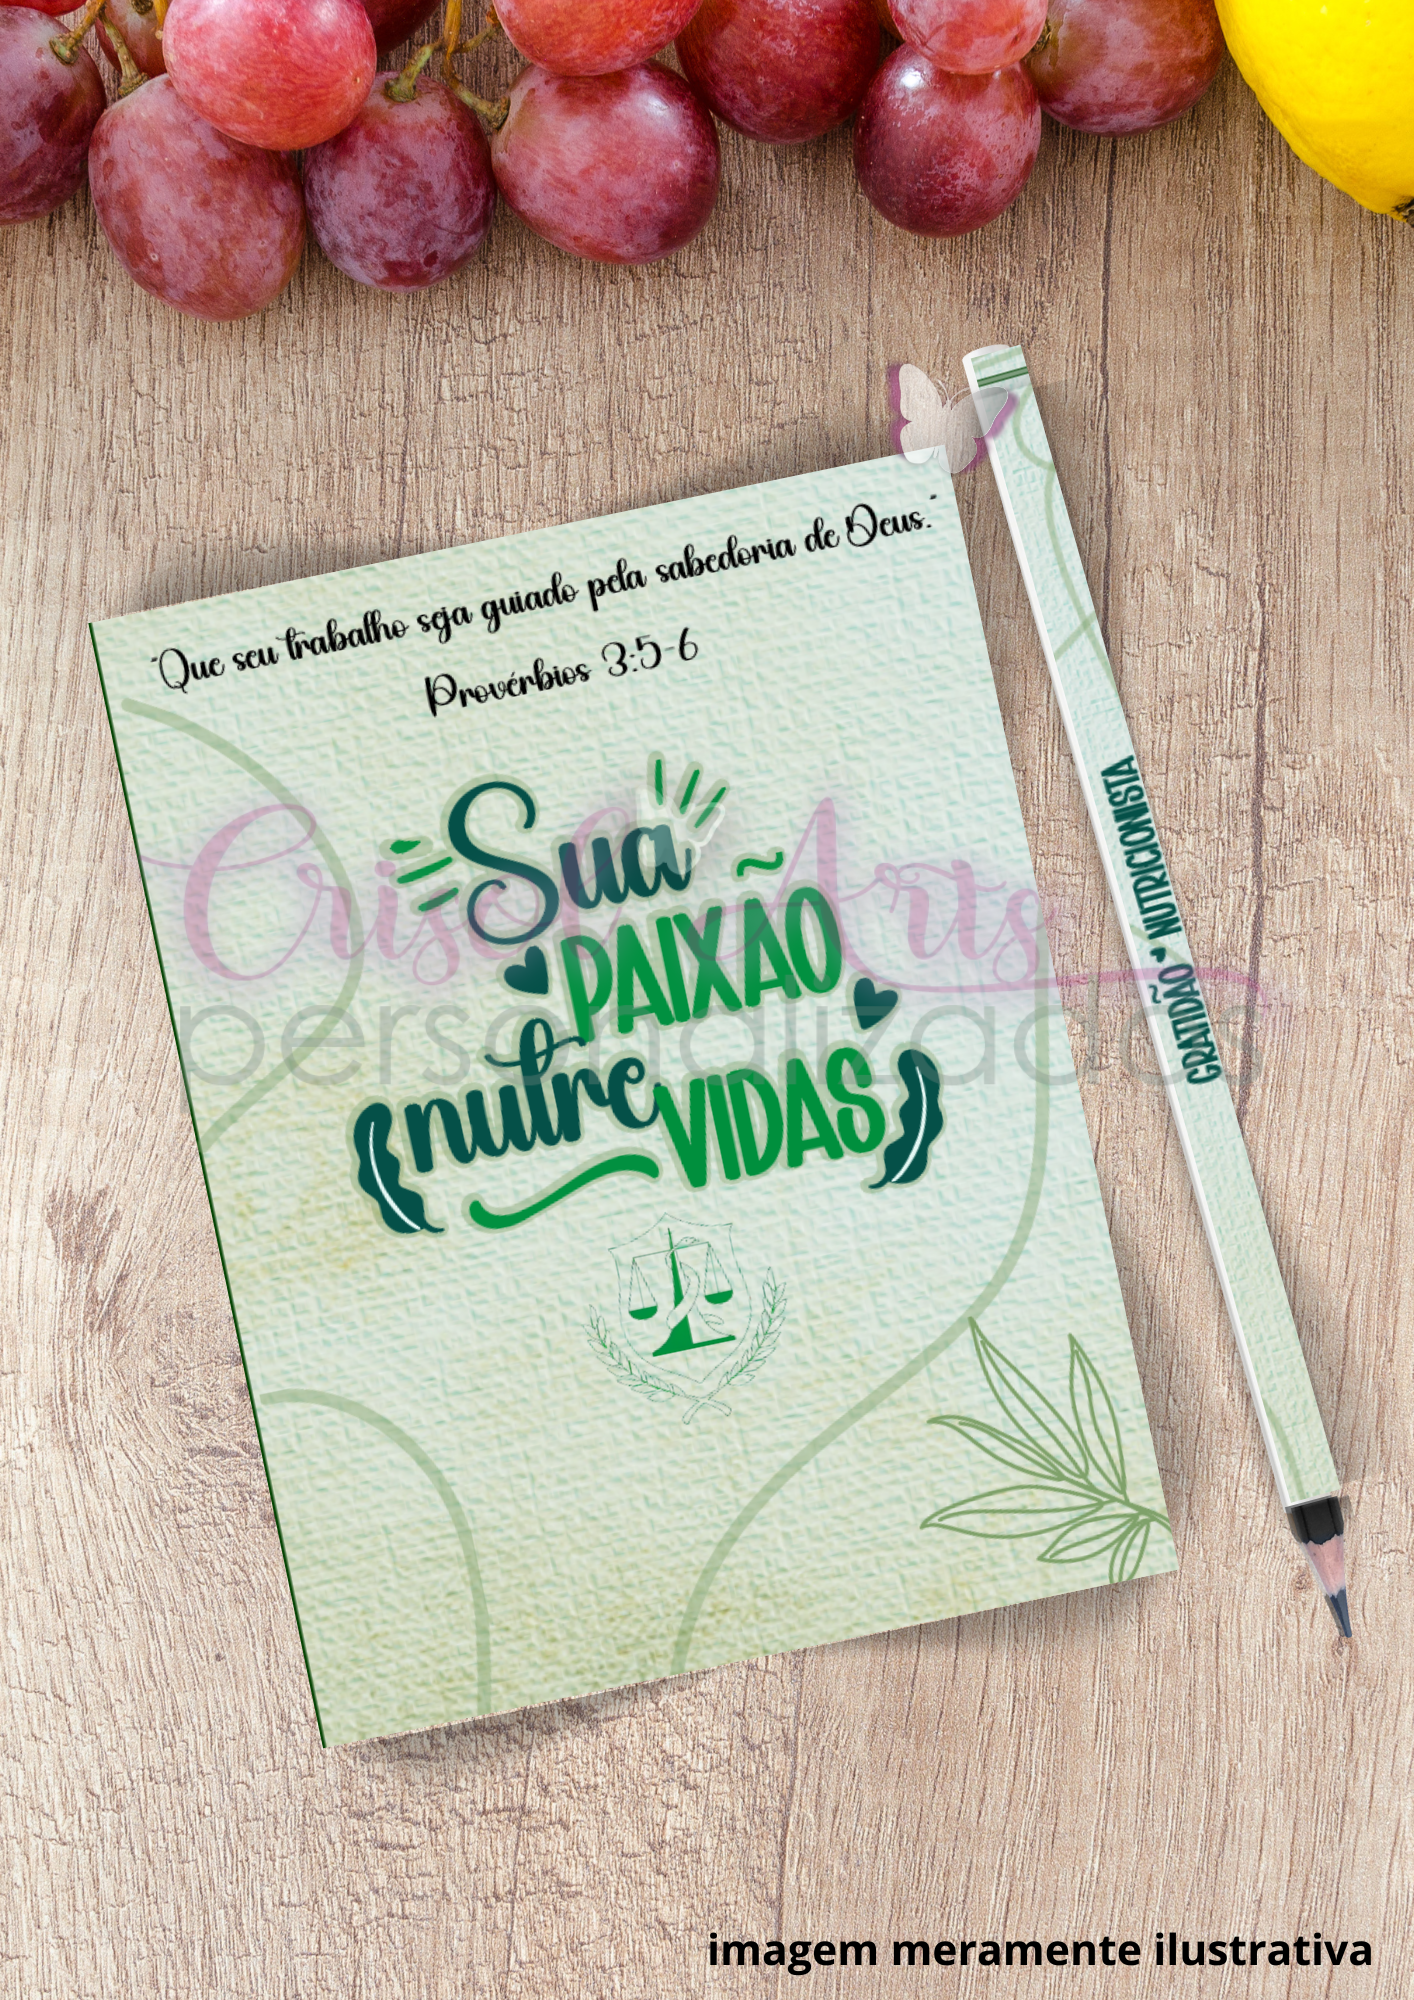 "Que seu trabalho seja guiado pela sabedoria de Deus."
Provérbios 3:5-6
Sua
PAIXÃO
nutre VIDAS
GRATIDÃO NUTRICIONISTA
Crisol Arts
personalizados
imagem meramente ilustrativa